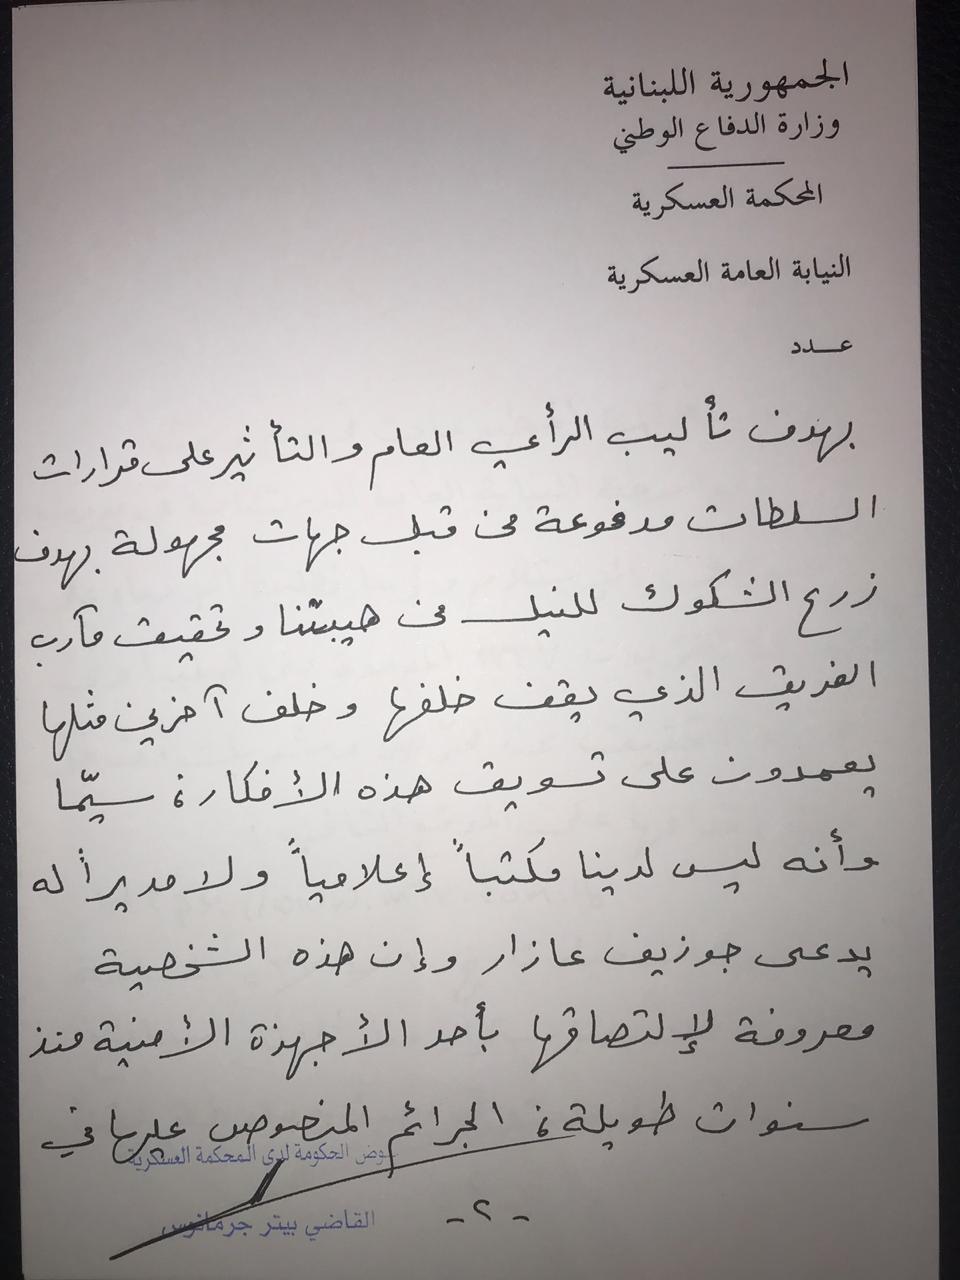 الجمهورية اللبنانية
وزارة الدفاع الوطني
المحكمة العسكرية
النيابة العامة العسكرية
عــدد
بهدف تأليب الرأي العام والتأثير على قرارات
السلطات مدفوعة من قبل جهات مجهولة بهدف
زرع الشكوك للنيل من هيبتنا وتحقيق مآرب
الفريق الذي يقف خلفها وخلف آخرين مثلها
يعمدون على تسويق هذه الأفكار، سيّما
وأنه ليس لدينا مكتباً إعلامياً ولا مديراً له
يدعى جوزيف عازار وإن هذه الشخصية
معروفة لإلتصاقها بأحد الأجهزة الأمنية منذ
سنوات طويلة، الجرائم المنصوص عليها في
الحكومة لدى المحكمة العسكرية
القاضي بيتر جرمانوس
- ٢ -